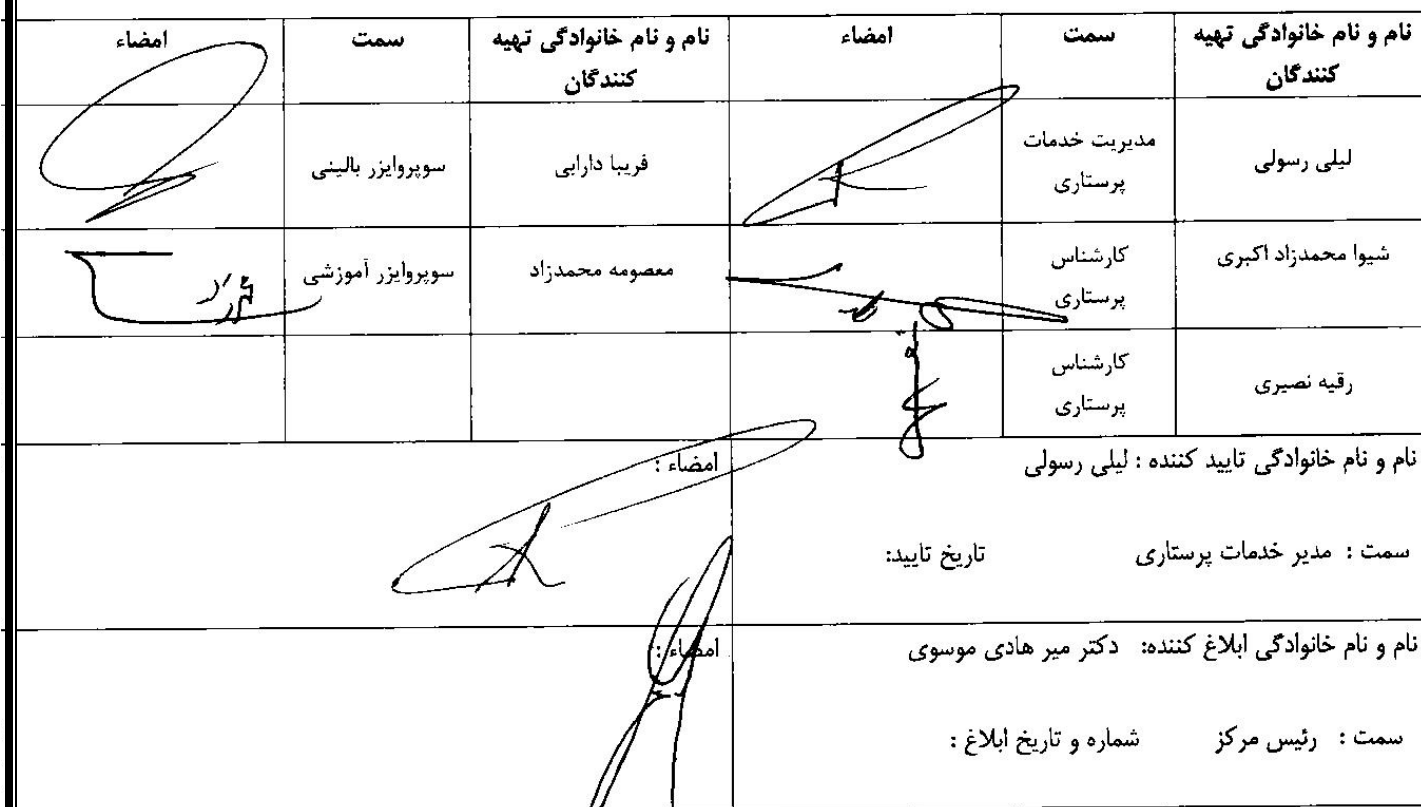 نام و نام خانوادگی تهیه کنندگان
سمت
امضاء
نام و نام خانوادگی تهیه کنندگان
سمت
امضاء
لیلی رسولی
مدیریت خدمات پرستاری
فریبا دارایی
سوپروایزر بالینی
شیوا محمدزاد اکبری
کارشناس پرستاری
معصومه محمدزاد
سوپروایزر آموزشی
رقیه نصیری
کارشناس پرستاری
نام و نام خانوادگی تایید کننده : لیلی رسولی
امضاء :
سمت : مدیر خدمات پرستاری تاریخ تایید:
نام و نام خانوادگی ابلاغ کننده: دکتر میر هادی موسوی
امضاء :
سمت : رئیس مرکز شماره و تاریخ ابلاغ :